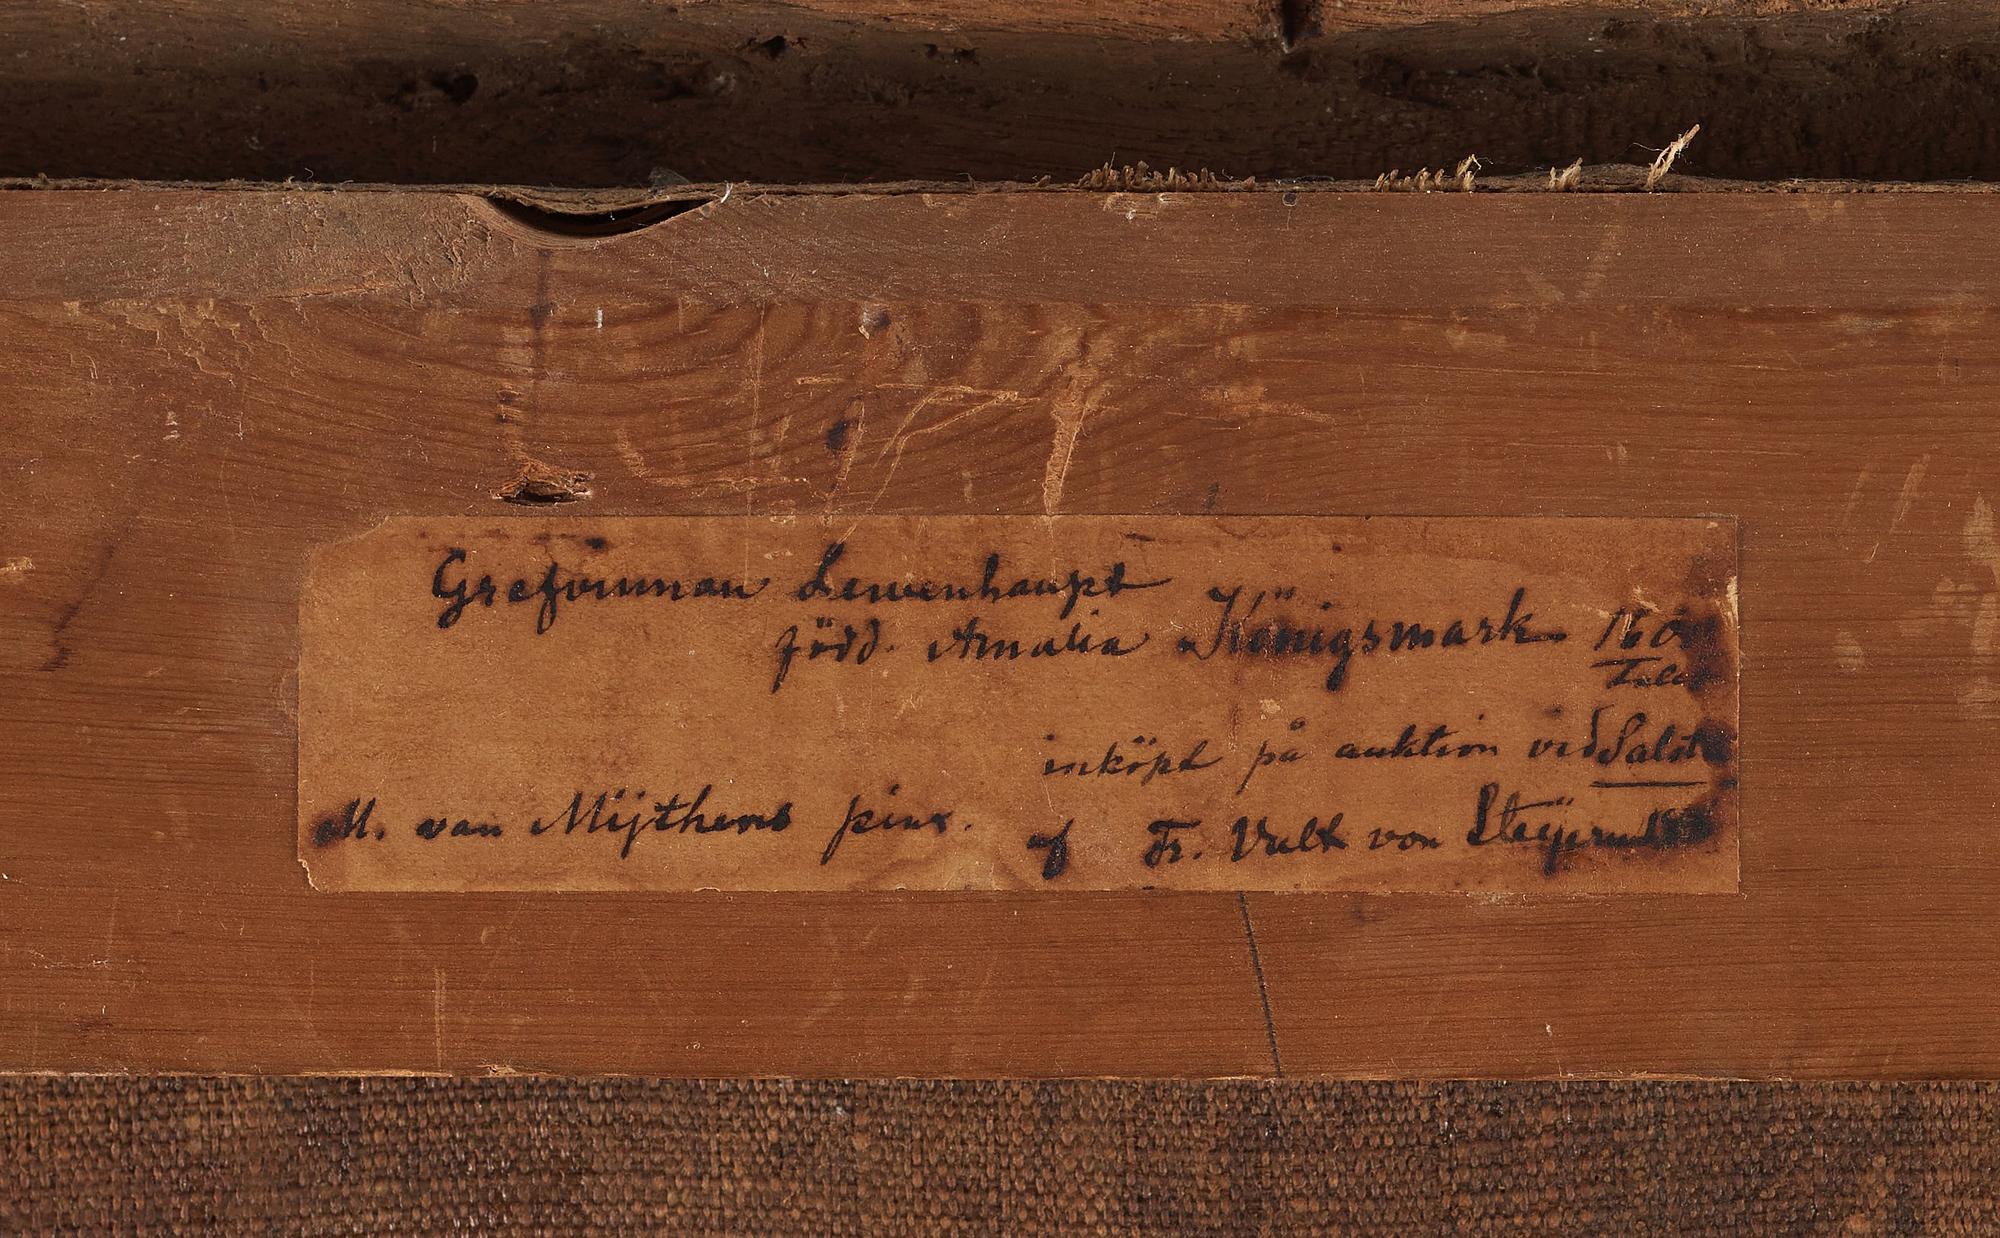 Grefvinnan Lewenhaupt
född. Amalia Königsmark
inköpt på auktion vid
M. van Mijthens pinx.
af Fr. Walt von